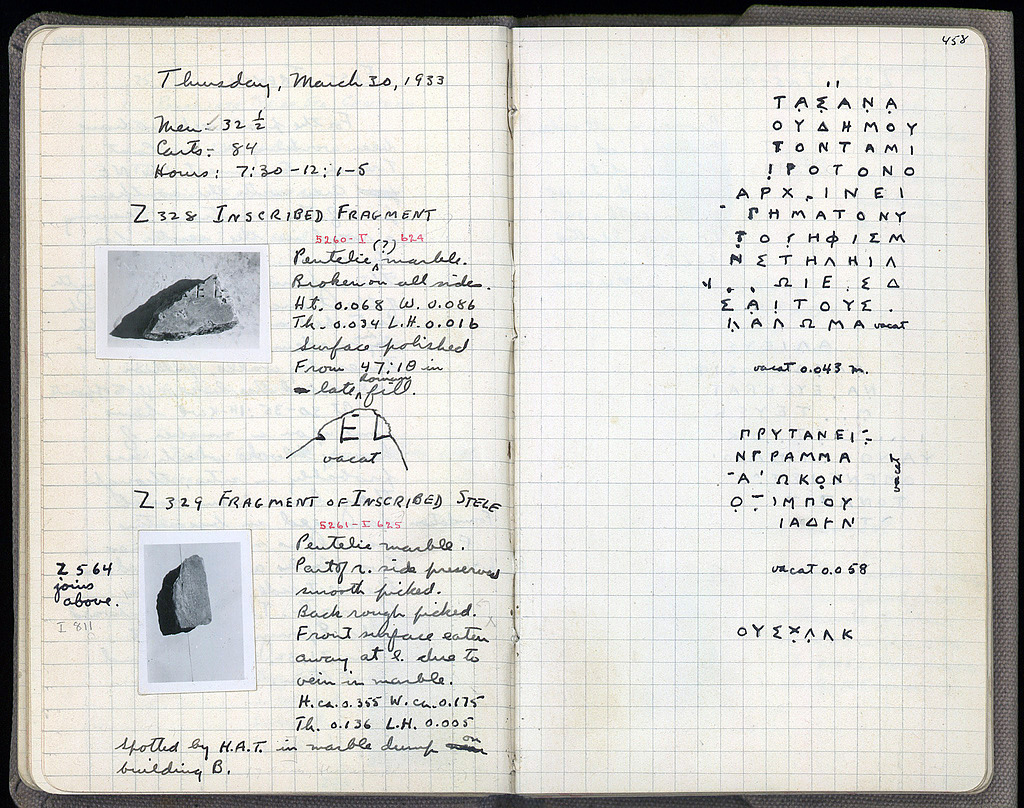 Thursday, March 30, 1933
Men: 32 1/2
Carts: 84
Hours: 7:30-12; 1-5
Z 328 INSCRIBED FRAGMENT
5260-I 624
Pentelic (?) marble.
Broken on all sides.
Ht. 0.068 W. 0.086
Th. 0.034 L.H. 0.016
Surface polished
From 47:ΙΘ in
late Roman fill.
vacat
Z 329 FRAGMENT OF INSCRIBED STELE
5261-I 625
Pentelic marble.
Part of r. side preserved
smooth picked.
Back rough picked.
Front surface eaten
away at l. due to
vein in marble.
H. ca. 0.355 W. ca. 0.175
Th. 0.136 L.H. 0.005
Z 564
joins
above.
I 811
Spotted by H.A.T. in marble dump on
building B.
458
ΤΑΣΑΝΑ
ΟΥΔΗΜΟΥ
ΤΟΝΤΑΜΙ
ΡΟΤΟΝΟ
ΑΡΧ.ΙΝΕΙ
ΓΗΜΑΤΟΝΥ
ΝΣΤΗΛΗΙΛ
ΩΙΕ.ΣΔ
ΣΑΙΤΟΥΣ.
ΑΛΩΜΑ vacat
vacat 0.043 m.
ΠΡΥΤΑΝΕΙ
ΝΓΡΑΜΜΑ
ΩΚΟΝ
vacat
ΙΜΠΟΥ
vacat 0.058